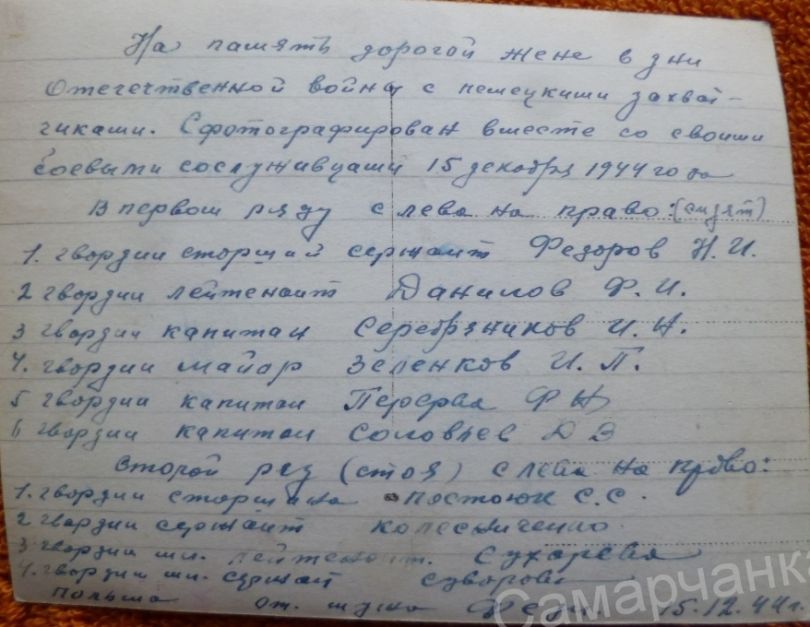 На память дорогой жене в дни
Отечественной войны с немецкими захват-
чиками. Сфотографирован вместе со своими
боевыми сослуживцами 15 декабря 1944 года
В первом ряду с лева на право: (сидят)
1. гвардии старший сержант Федоров Н. И.
2 гвардии лейтенант Данилов Ф. И.
3 гвардии капитан Серебряников И. Н.
4. гвардии майор Зеленков И. П.
5 гвардии капитан Перерва Ф Н
6 гвардии капитан Соловьев Д Э
Второй ряд (стоя) с лева на право:
1. гвардии старшина С. С.
2 гвардии сержант Колесниченко
3 гвардии мл. лейтенант. Сухарева
4. гвардии мл. сержант Суворова
Польша от. мужа Феди. 15.12.44 г.
Самарчанка